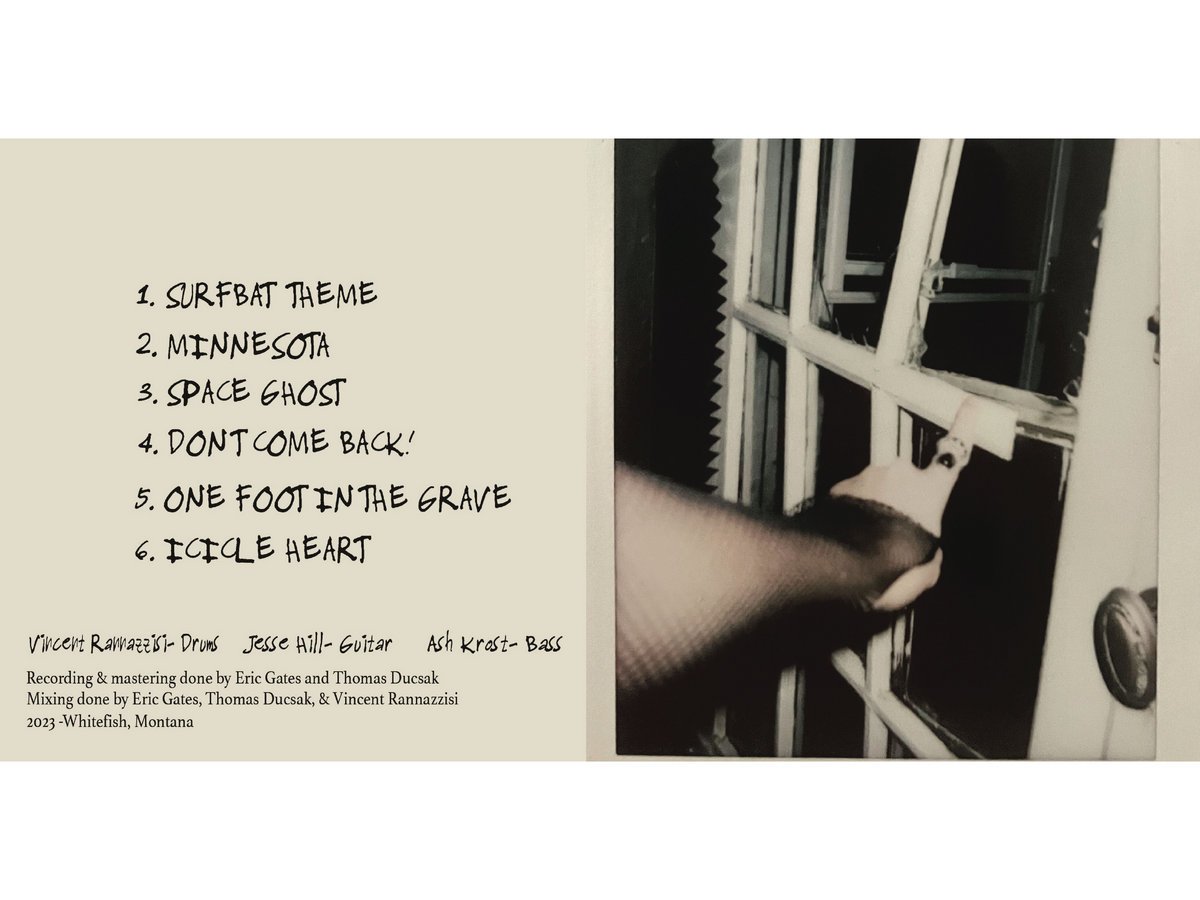 1. SURFBAT THEME
2. MINNESOTA
3. SPACE GHOST
4. DONT COME BACK!
5. ONE FOOT IN THE GRAVE
6. ICICLE HEART
Vincent Rannazzisi- Drums Jesse Hill- Guitar Ash Krost- Bass
Recording & mastering done by Eric Gates and Thomas Ducsak
Mixing done by Eric Gates, Thomas Ducsak, & Vincent Rannazzisi
2023 -Whitefish, Montana